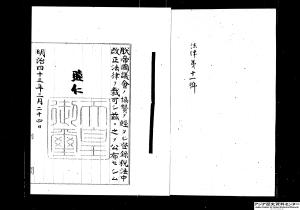 法律第十一件
朕帝國議會ノ協贊ヲ經タル登録税法中
改正法律ヲ裁可シ茲ニ之ヲ公布セシム
睦仁
天皇
御璽
明治四十三年三月二十四日
アジア歴史資料センター